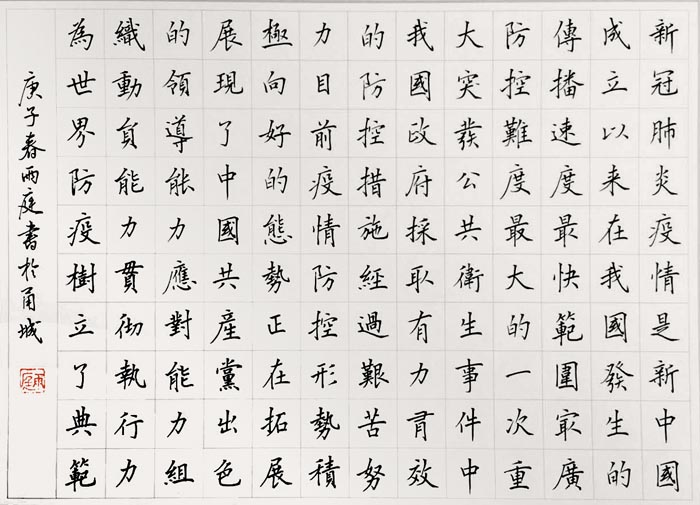 新冠肺炎疫情是新中國
成立以来在我國發生的
傳播速度最快範圍冣廣
防控難度最大的一次重
大突發公共衛生事件中
我國政府採取有力有效
的防控措施經過艱苦努
力目前疫情防控形勢積
極向好的態勢正在拓展
展現了中國共產黨出色
的領導能力應對能力組
織動員能力貫彻執行力
為世界防疫樹立了典範
庚子春雨庭書於甬城